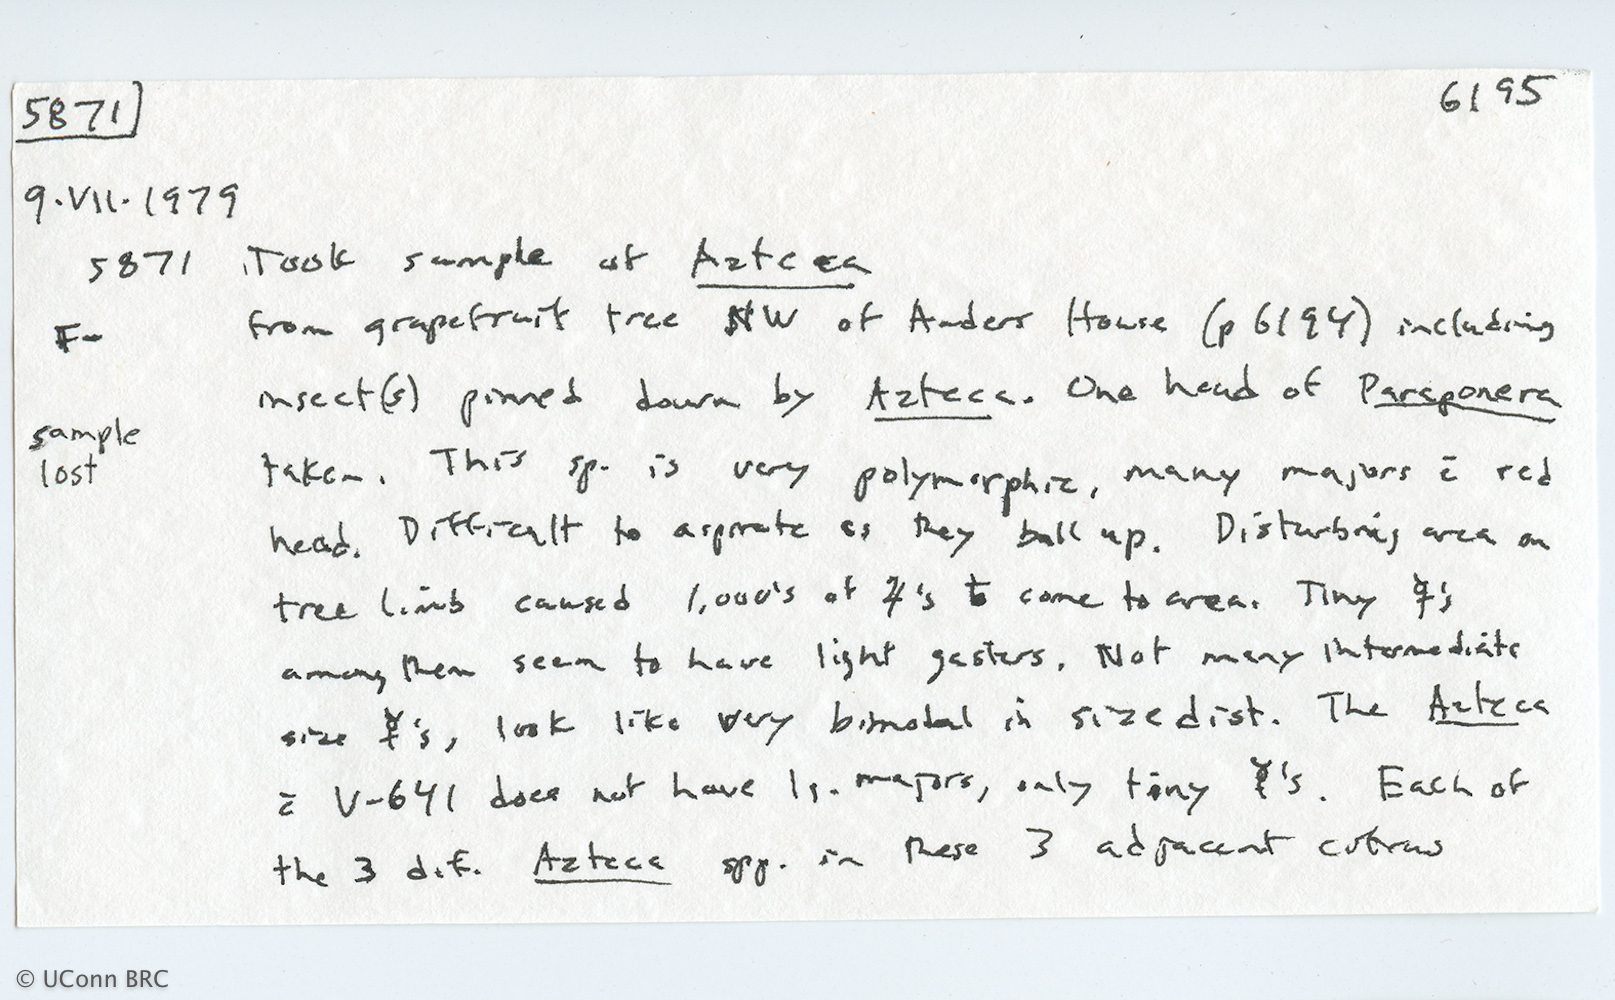 5871 6195
9.VII.1979
5871 Took sample of Azteca
F- from grapefruit tree NW of Anders House (p 6194) including
insect(s) pinned down by Azteca. One head of Paraponera
sample
lost taken. This sp. is very polymorphic, many majors c̄ red
head. Difficult to aspirate as they ball up. Disturbing area on
tree limb caused 1,000's of ☿'s to come to area. Tiny ☿'s
among them seem to have light gasters. Not many intermediate
size ☿'s, look like very bimodal in size dist. The Azteca
c̄ V-641 does not have lg. majors, only tiny ☿'s. Each of
the 3 dif. Azteca spp. in these 3 adjacent citrus
© UConn BRC